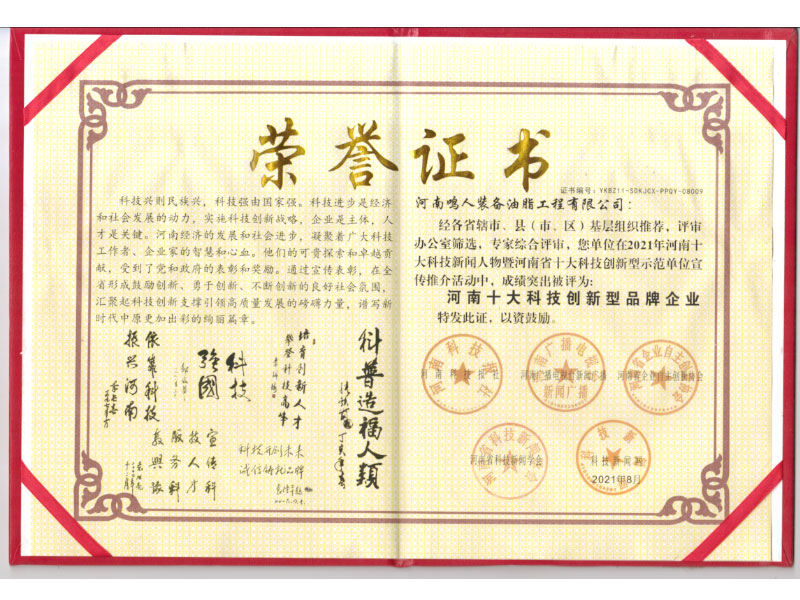 荣誉证书
证书编号：YKBZ11-SDKJCX-PPQY-08009
科技兴则民族兴，科技强由国家强。科技进步是经济
和社会发展的动力，实施科技创新战略，企业是主体，人
才是关键。河南经济的发展和社会进步，凝聚着广大科技
工作者、企业家的智慧和心血。他们的可贵探索和卓越贡
献，受到了党和政府的表彰和奖励。通过宣传表彰，在全
省形成鼓励创新、勇于创新、不断创新的良好社会氛围，
汇聚起科技创新支撑引领高质量发展的磅礴力量，谱写新
时代中原更加出彩的绚丽篇章。
科普造福人类
培育创新人才
攀登科技高峰
科技
强国
依靠科技
振兴河南
宣传科
技人才
服务科
教兴豫
河南鸣人装备油脂工程有限公司：
经各省辖市、县（市、区）基层组织推荐，评审
办公室筛选，专家综合评审，您单位在2021年河南十
大科技新闻人物暨河南省十大科技创新型示范单位宣
传推介活动中，成绩突出被评为：
河南十大科技创新型品牌企业
特发此证，以资鼓励。
河南科技报社
河南省科技新闻学会
科技新闻网
2021年8月